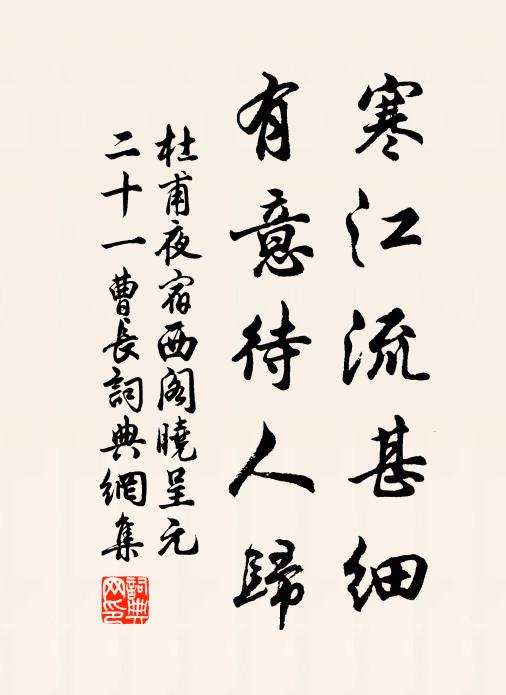 寒江流甚細
有意待人歸
杜甫夜宿西閣曉呈元
二十一曹長詞典網集
詞典
网印